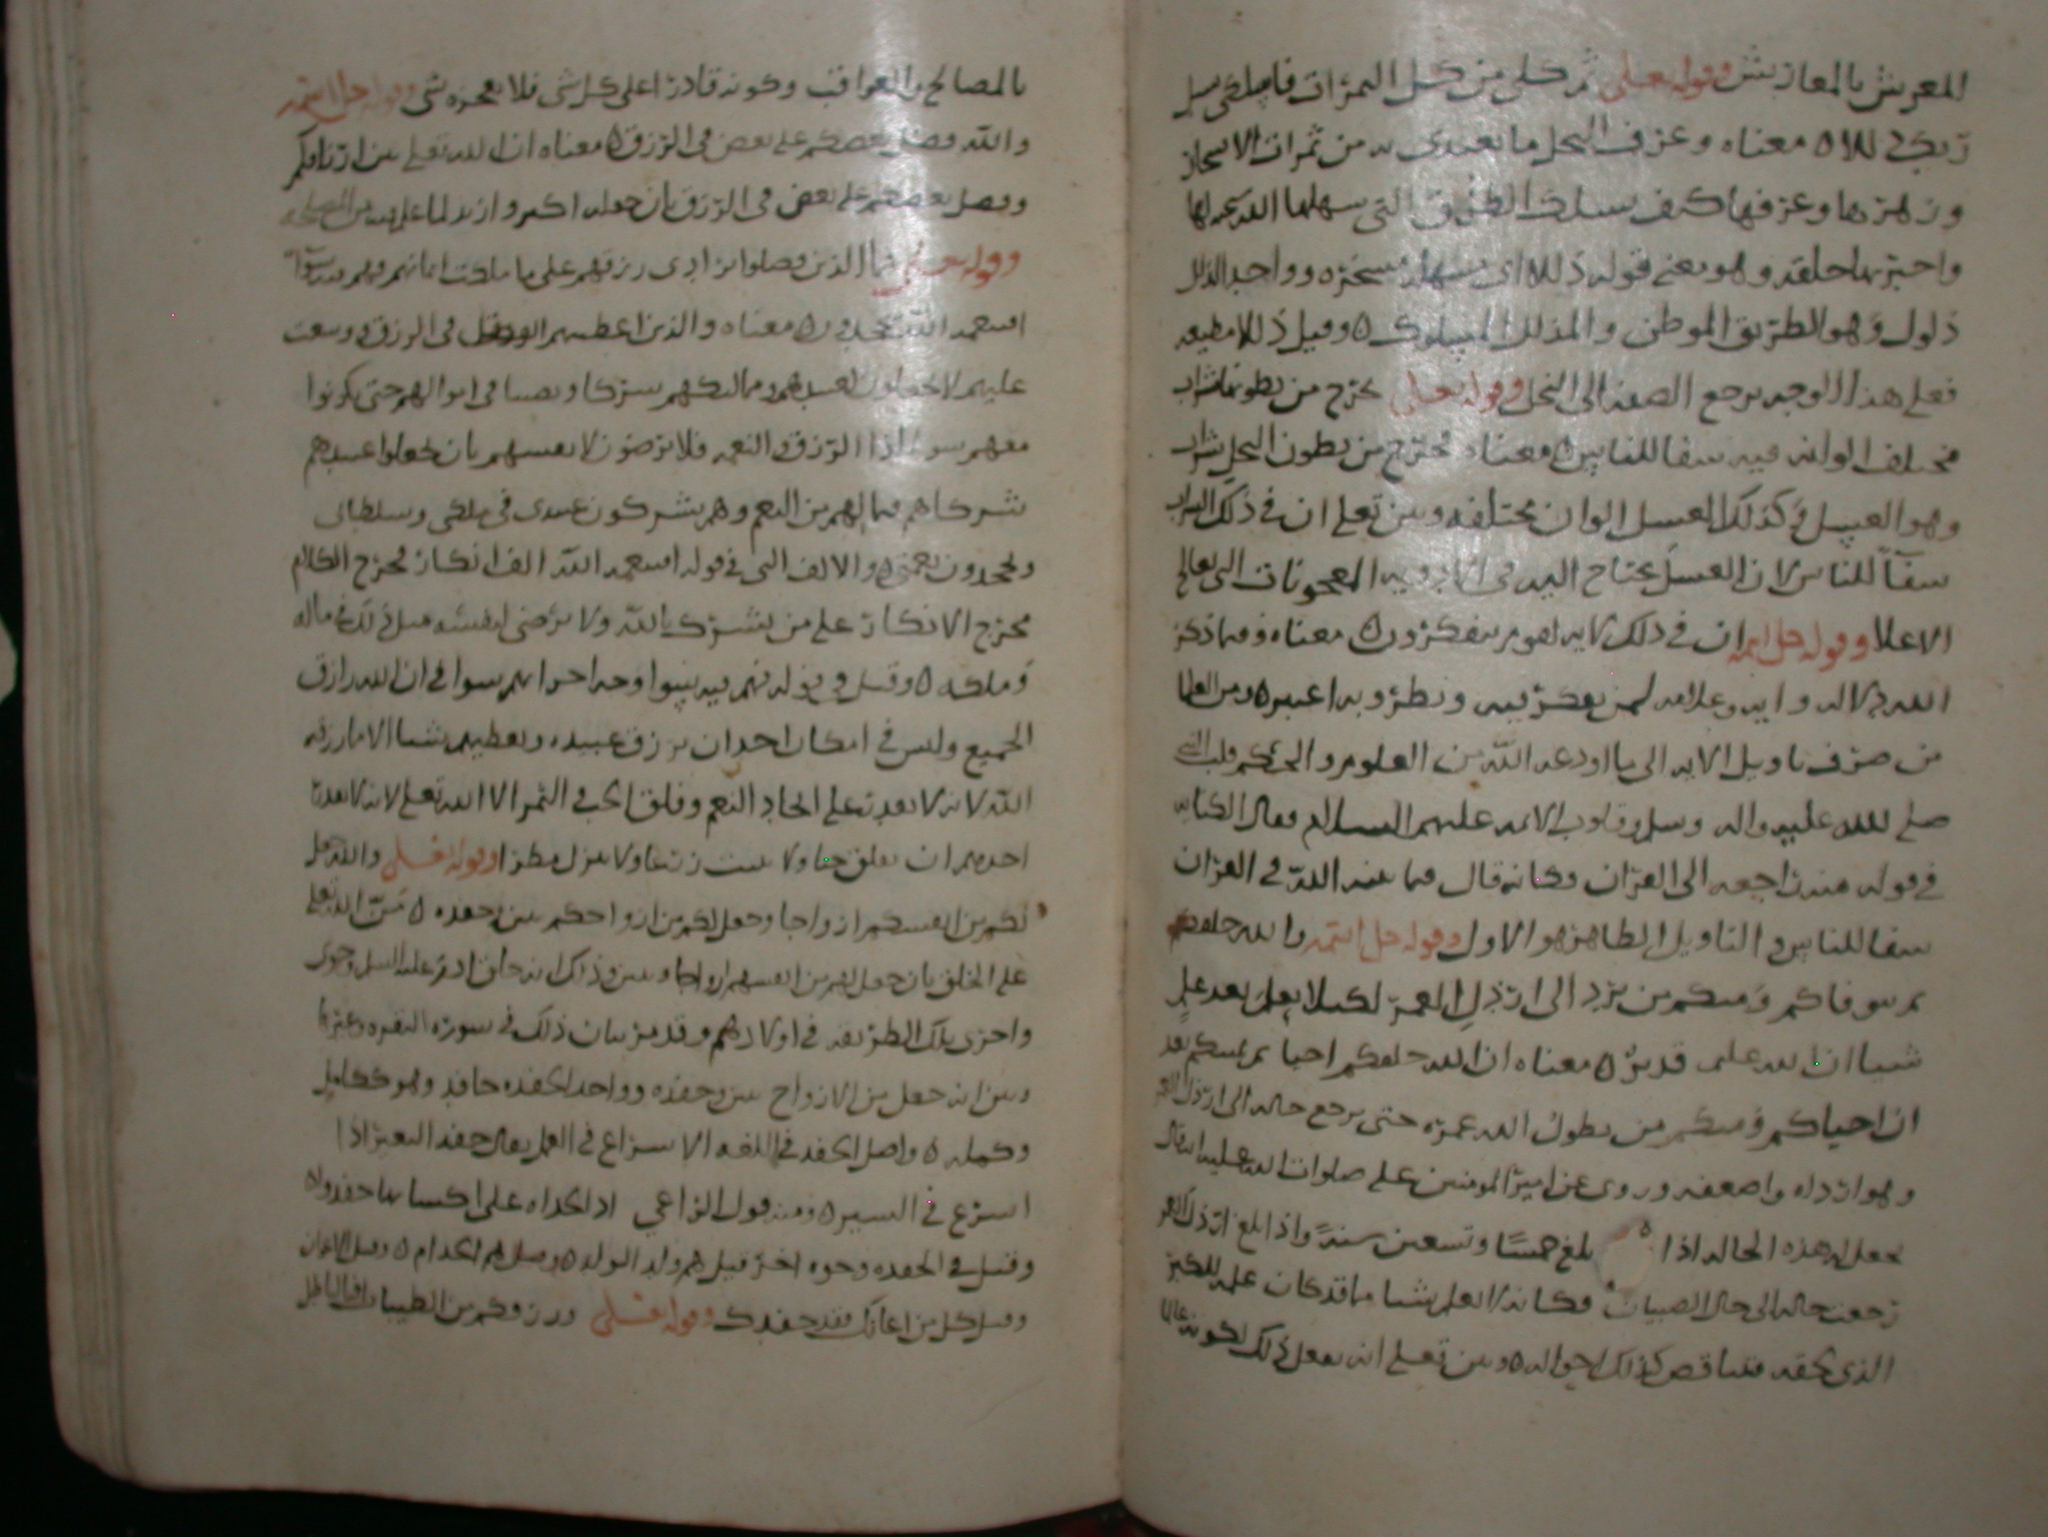 المعريش بالمعازيش وقوله تعالى ثم كلي من كل الثمرات فاسلكي سبل
ربك ذللا ه معناه وعرف النحل ما تغتدي به من ثمرات الاشجار
وزهرها وعرفها كيف يسلك الطريق التي سهلها الله لها
واخبر بما خلقه وهو معنى قوله ذللا اي سهله مسخره وواحد الذلل
ذلول وهو الطريق الموطن والمذلل المسلوك ه وقيل ذللا مطيعه
فعلى هذا الوجه يرجع الصفه الى النحل وقوله تعالى يخرج من بطونها شراب
مختلف الوانه فيه شفا للناس ه معناه يخرج من بطون النحل شراب
وهو العسل في كذلك العسل الوان مختلفه وبين تعلى ان في ذلك الشراب
شفآ للناس لان العسل يحتاج اليه في الادويه المعجونات التي يعالج
الاعلا وقوله جل اسمه ان في ذلك لايه لقوم يتفكرون ه معناه وفيما ذكر
الله دلاله وايه وعلامه لمن يفكر فيه ونظر وبه اعتبر ه ومن العلما
من صرف تاويل الايه الى ما اودعه الله من العلوم والحكم قلب النبي
صلى الله عليه واله وسلم وقلوب الايمه عليهم السلام فقال الكنايه
في قوله فيه راجعه الى القران وكانه قال فيما بينه الله في القران
شفا للناس والتاويل الظاهر هو الاول وقوله جل اسمه والله خلقكم
ثم يتوفاكم ومنكم من يرد الى ارذل العمر لكيلا يعلم بعد علم
شيا ان الله عليم قدير ه معناه ان الله خلقكم احيا ثم يميتكم بعد
ان احياكم ومنكم من يطول الله عمره حتى يرجع حاله الى ارذل العمر
وهو ارداه واضعفه وروي عن امير المومنين علي صلوات الله عليه انه قال
يحعل له هذه الحاله اذا بلغ خمسًا وتسعين سنةً واذا بلغ ارذل العمر
رجعت حاله الى حال الصبيان فكانه لا يعلم شيا مما قد كان علمه للكبر
الذي لحقه فتناقص كذلك احواله ه وبين تعلى انه يفعل ذلك لكونه عالما
بالمصالح والعواقب وكونه قادرا على كل شي فلا يعجزه شي وقوله جل اسمه
والله فضل بعضكم على بعض في الرزق ه معناه ان الله تعلى بين ارزاقكم
وفضل بعضكم على بعض في الرزق بان جعله اكبر وازيد لما علم فيه من المصلحه
وقوله تعالى فما الذين فضلوا برادي رزقهم على ما ملكت ايمانهم فهم فيه سوآ
افبنعمه الله يجحدون ه معناه والذين اعطيتهم الفضل في الرزق ووسعت
عليهم لا يجعلون لعبيدهم ومماليكهم شركا ونصيبا في اموالهم حتى يكونوا
معهم سوا في هذا الرزق والنعمه فلا يرضون لانفسهم بان يجعلوا عبيدهم
شركاهم فيما لهم من النعم وهم يشركون عبيدي في ملكي وسلطاني
ويجحدون نعمتي ه والالف التي في قوله افبنعمه الله الف انكار يخرج الكلام
مخرج الانكار على من يشرك بالله ولا يرضى لنفسه مثل ذلك في ماله
وملكه ه وقيل في قوله فهم فيه سوا وجه اخر انهم سوا في ان الله رازق
الجميع وليس في امكان احد ان يرزق عبيده ويعطيهم شيا الا ما رزقه
الله لانه لا يقدر على ايجاد النعم وفلق الحب في الثمر الا الله تعلى لانه لا يقدر
احدهم ان يفلق حبا ولا ينبت زرعا ولا ينزل مطرا وقوله تعالى والله جعل
لكم من انفسكم ازواجا وجعل لكم من ازواجكم بنين وحفده ه من الله تعلى
على الخلق بان جعل لهم من انفسهم ازواجا وبنين وذلك انه خلق ادم عليه السلم وحوى
واجرى تلك الطريقه في اولادهم وقد مر بيان ذلك في سوره البقره وغيرها
وبين انه جعل من الازواج بنين وحفده وواحد الحفده حافد وهو ككامل
وكمله ه واصل الحفد في اللغه الاسراع في العمل يقال حفد البعير اذا
اسرع في السير ه ومنه قول الراعي اذا الحداه على اكسايها حفدوا ه
وقيل في الحفده وجوه اخر قيل هم ولد الولد ه وقيل هم الخدام ه وقيل الاعوان
وقيل كل من اعانك فقد حفدك وقوله تعالى ورزقكم من الطيبات افبالباطل